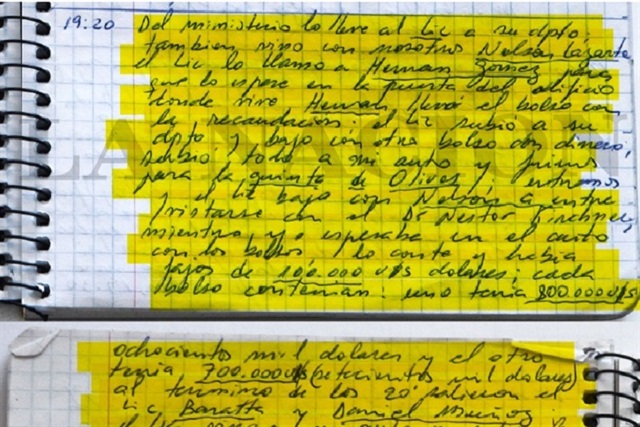 19:20 Del ministerio lo lleve al Lic a su dpto,
tambien vino con nosotros Nelson Lazarte
el Lic lo llamo a Hernan Gomez para
que lo espere en la puerta del edificio
donde vive Hernan llevó el bolso con
la recaudacion; el Lic subió a su
dpto y bajo con otro bolso con dinero,
subió todo a mi auto y fuimos
para la quinta de Olivos, entramos
y el Lic bajo con Nelson a entre
vistarse con el Dr Nestor Kirchner,
mientra, yo esperaba en el auto
con los bolsos lo conte y habia
fajos de 100.000 U$S dolares; cada
bolso contenian: uno tenia 800.000 U$S
ochocientos mil dolares y el otro
tenia 700.000 U$S (setecientos mil dolares)
al termino de los 20' salieron el
Lic Baratta y Daniel Muñoz
LA NACION